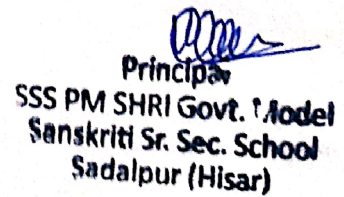 Principal
SSS PM SHRI Govt. Model
Sanskriti Sr. Sec. School
Sadalpur (Hisar)